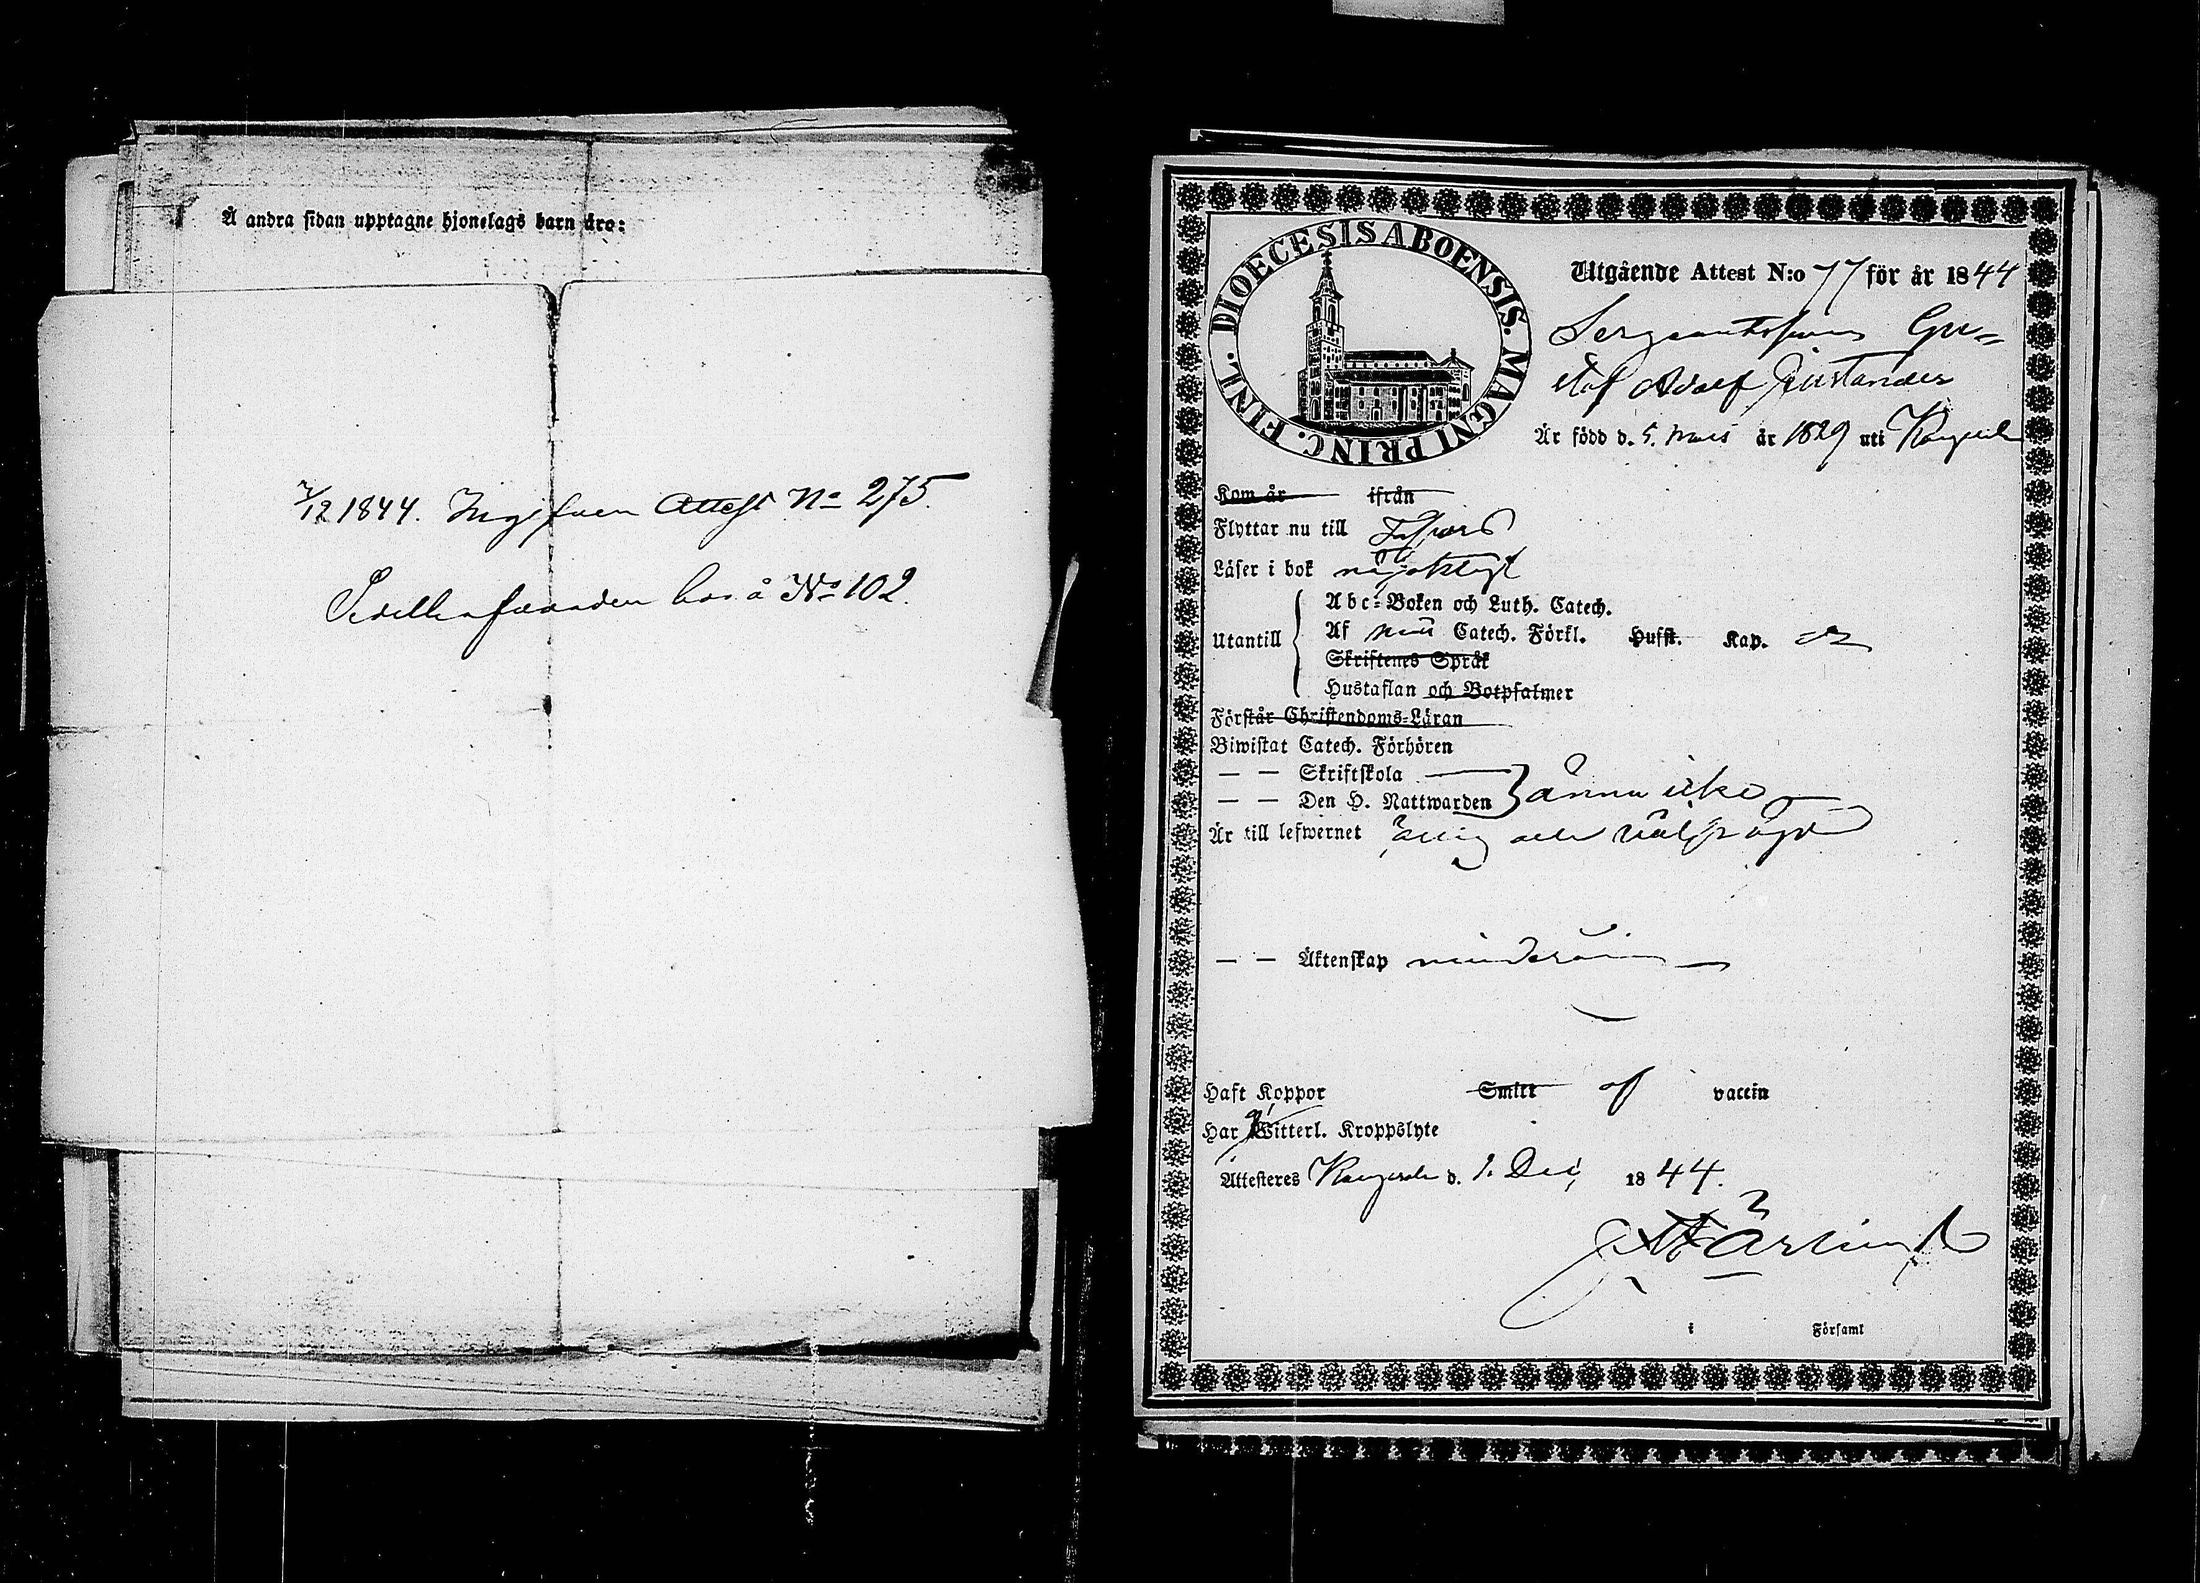 Å andra sidan upptagne hjonelags barn äro:
7/12 1844. Ingifven Attest No 275.
No 102.
DIOECESIS ABOENSIS. MAGNI PRINC. FINL.
Utgående Attest N:o 77 för år 1844
Sergeantssonen Gu=
staf Adolf
Är född d. 5. Mars år 1829 uti
Kom år ifrån
Flyttar nu till T:fors
Läser i bok någorlunda
Abc-Boken och Luth. Catech.
Utantill Af Catech. Förkl. Husst. Kap.
Skriftenes Språk
Hustaflan och Botpsalmer
Förstår Christendoms-Läran
Biwistat Catech. Förhören
— — Skriftskola
— — Den H. Nattwarden ännu icke
Är till lefwernet ärlig och välfrägd
— — Äktenskap minderårig
Haft Koppor Smitt af vaccin
Har Witterl. Kroppslyte
Attesteres Kangasala d. 1. Dec 1844.
i Församl